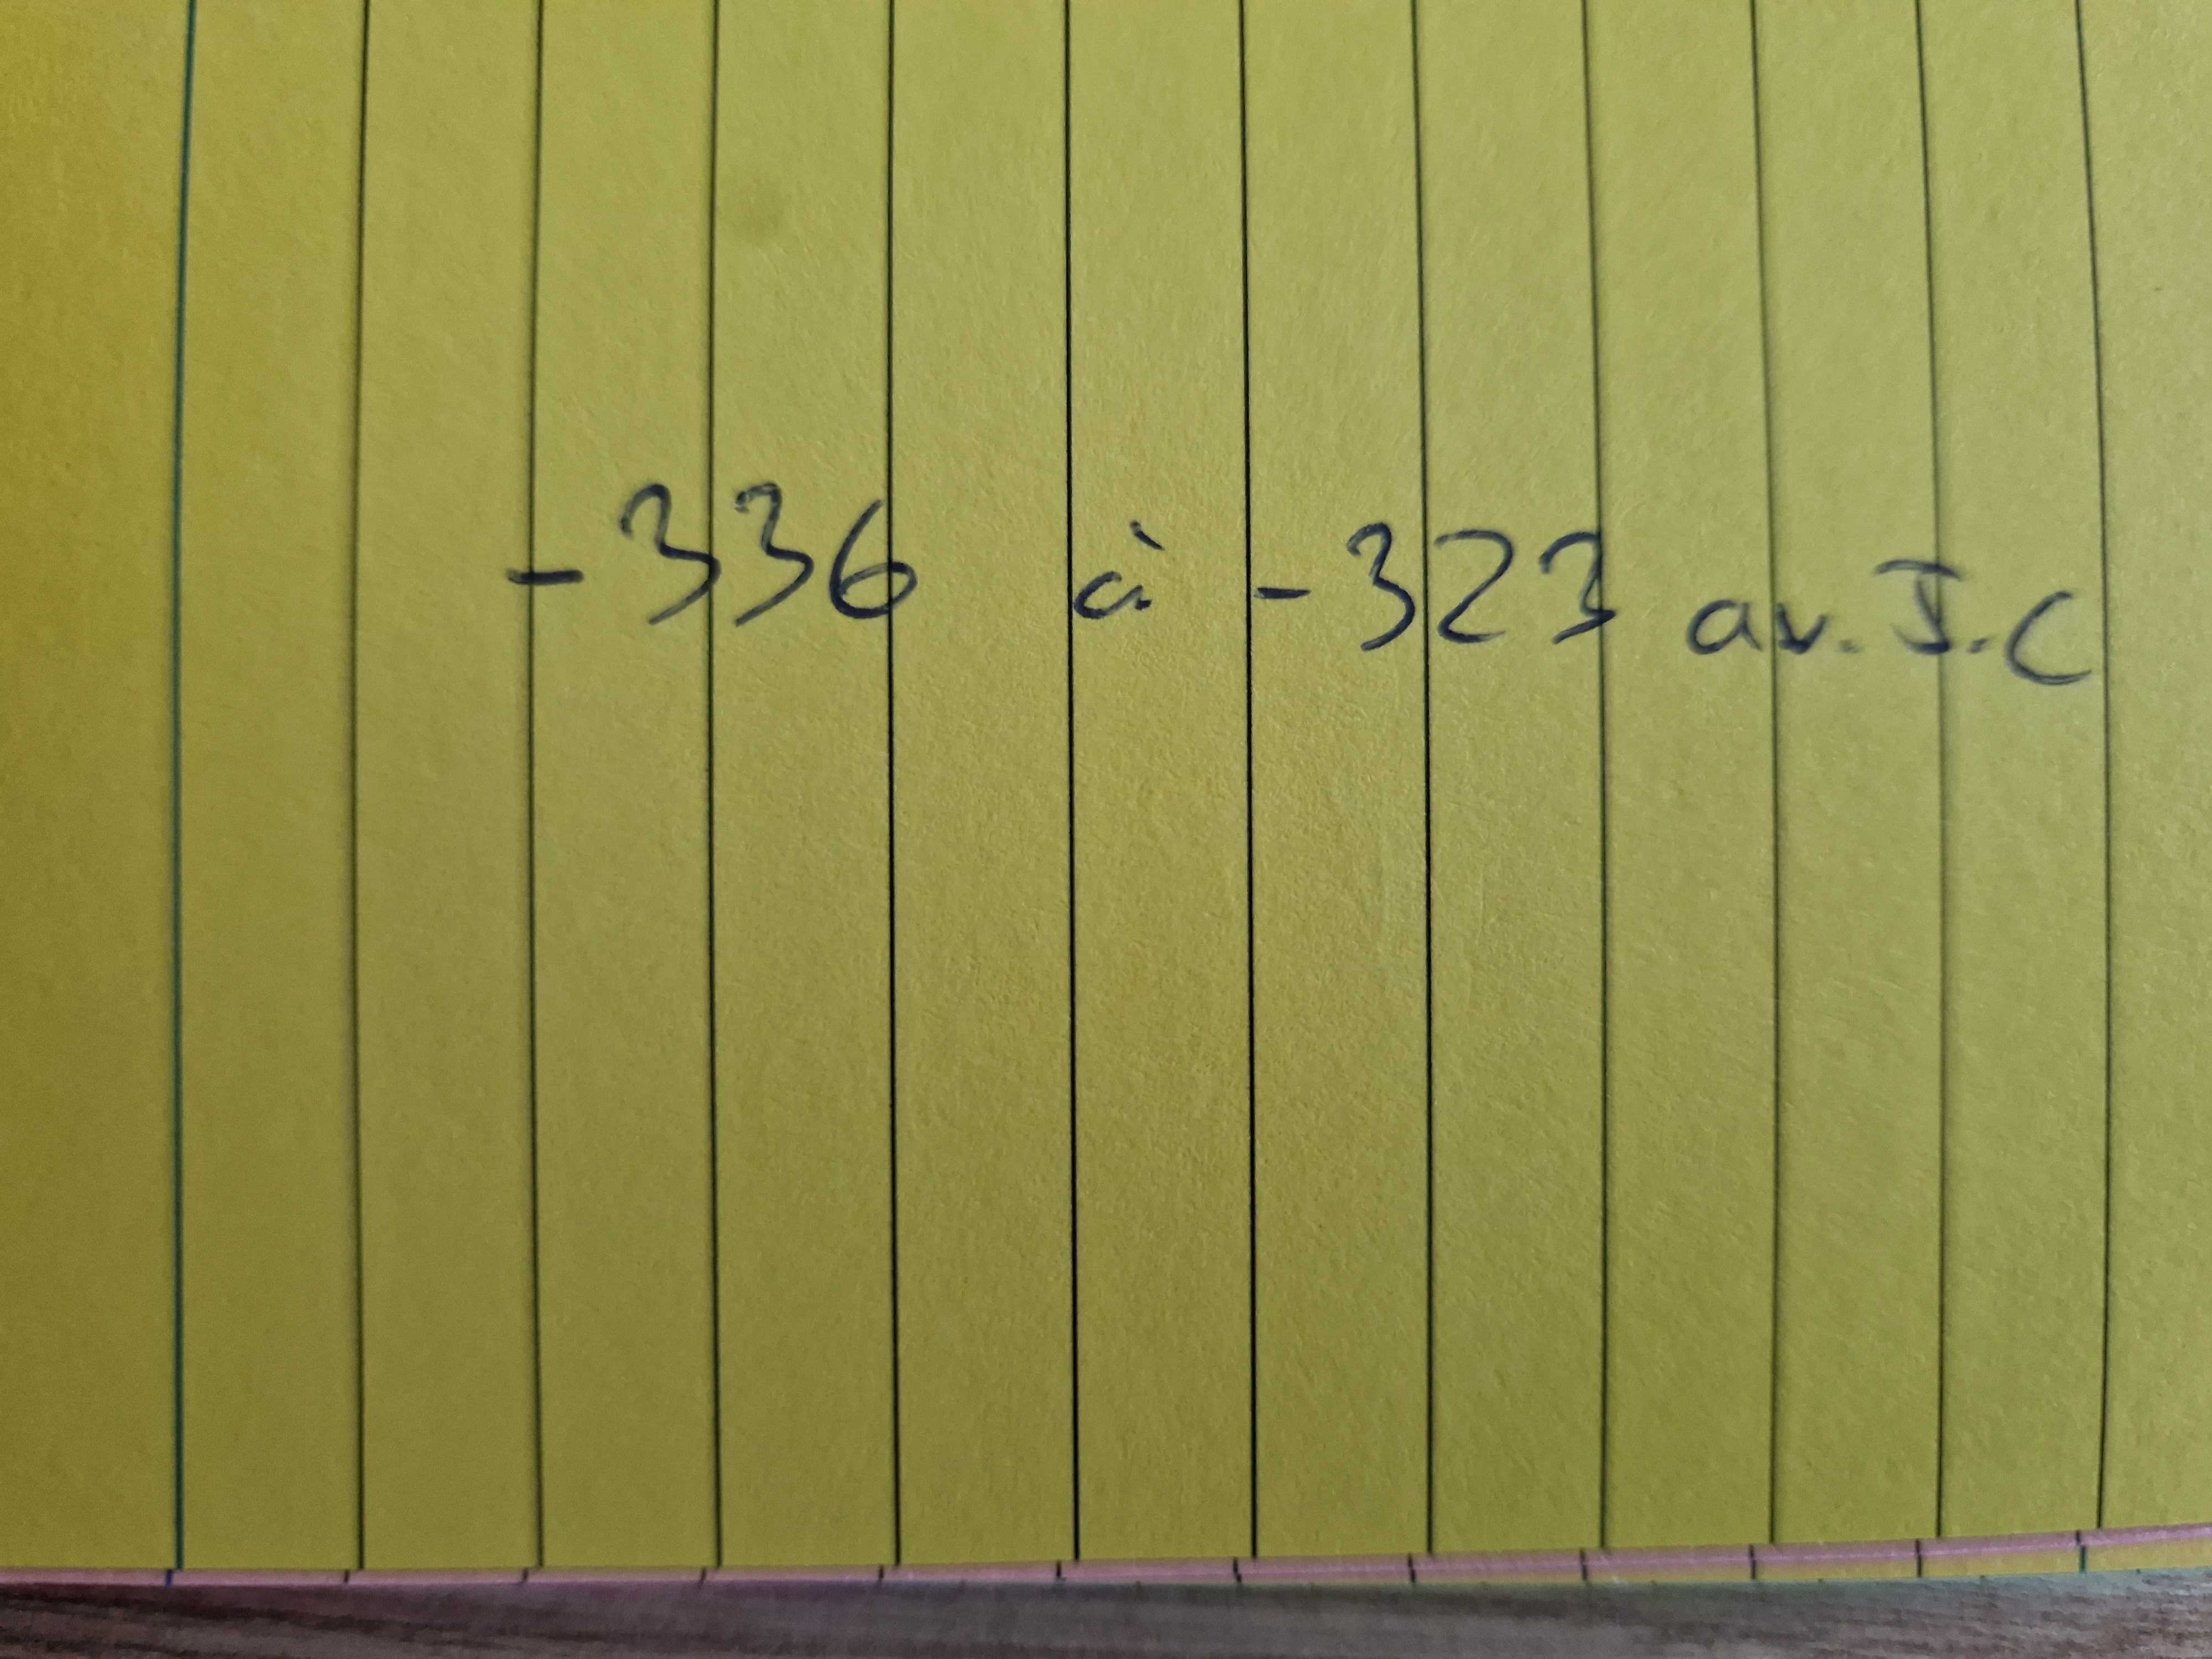 -336 à -323 av. J.C